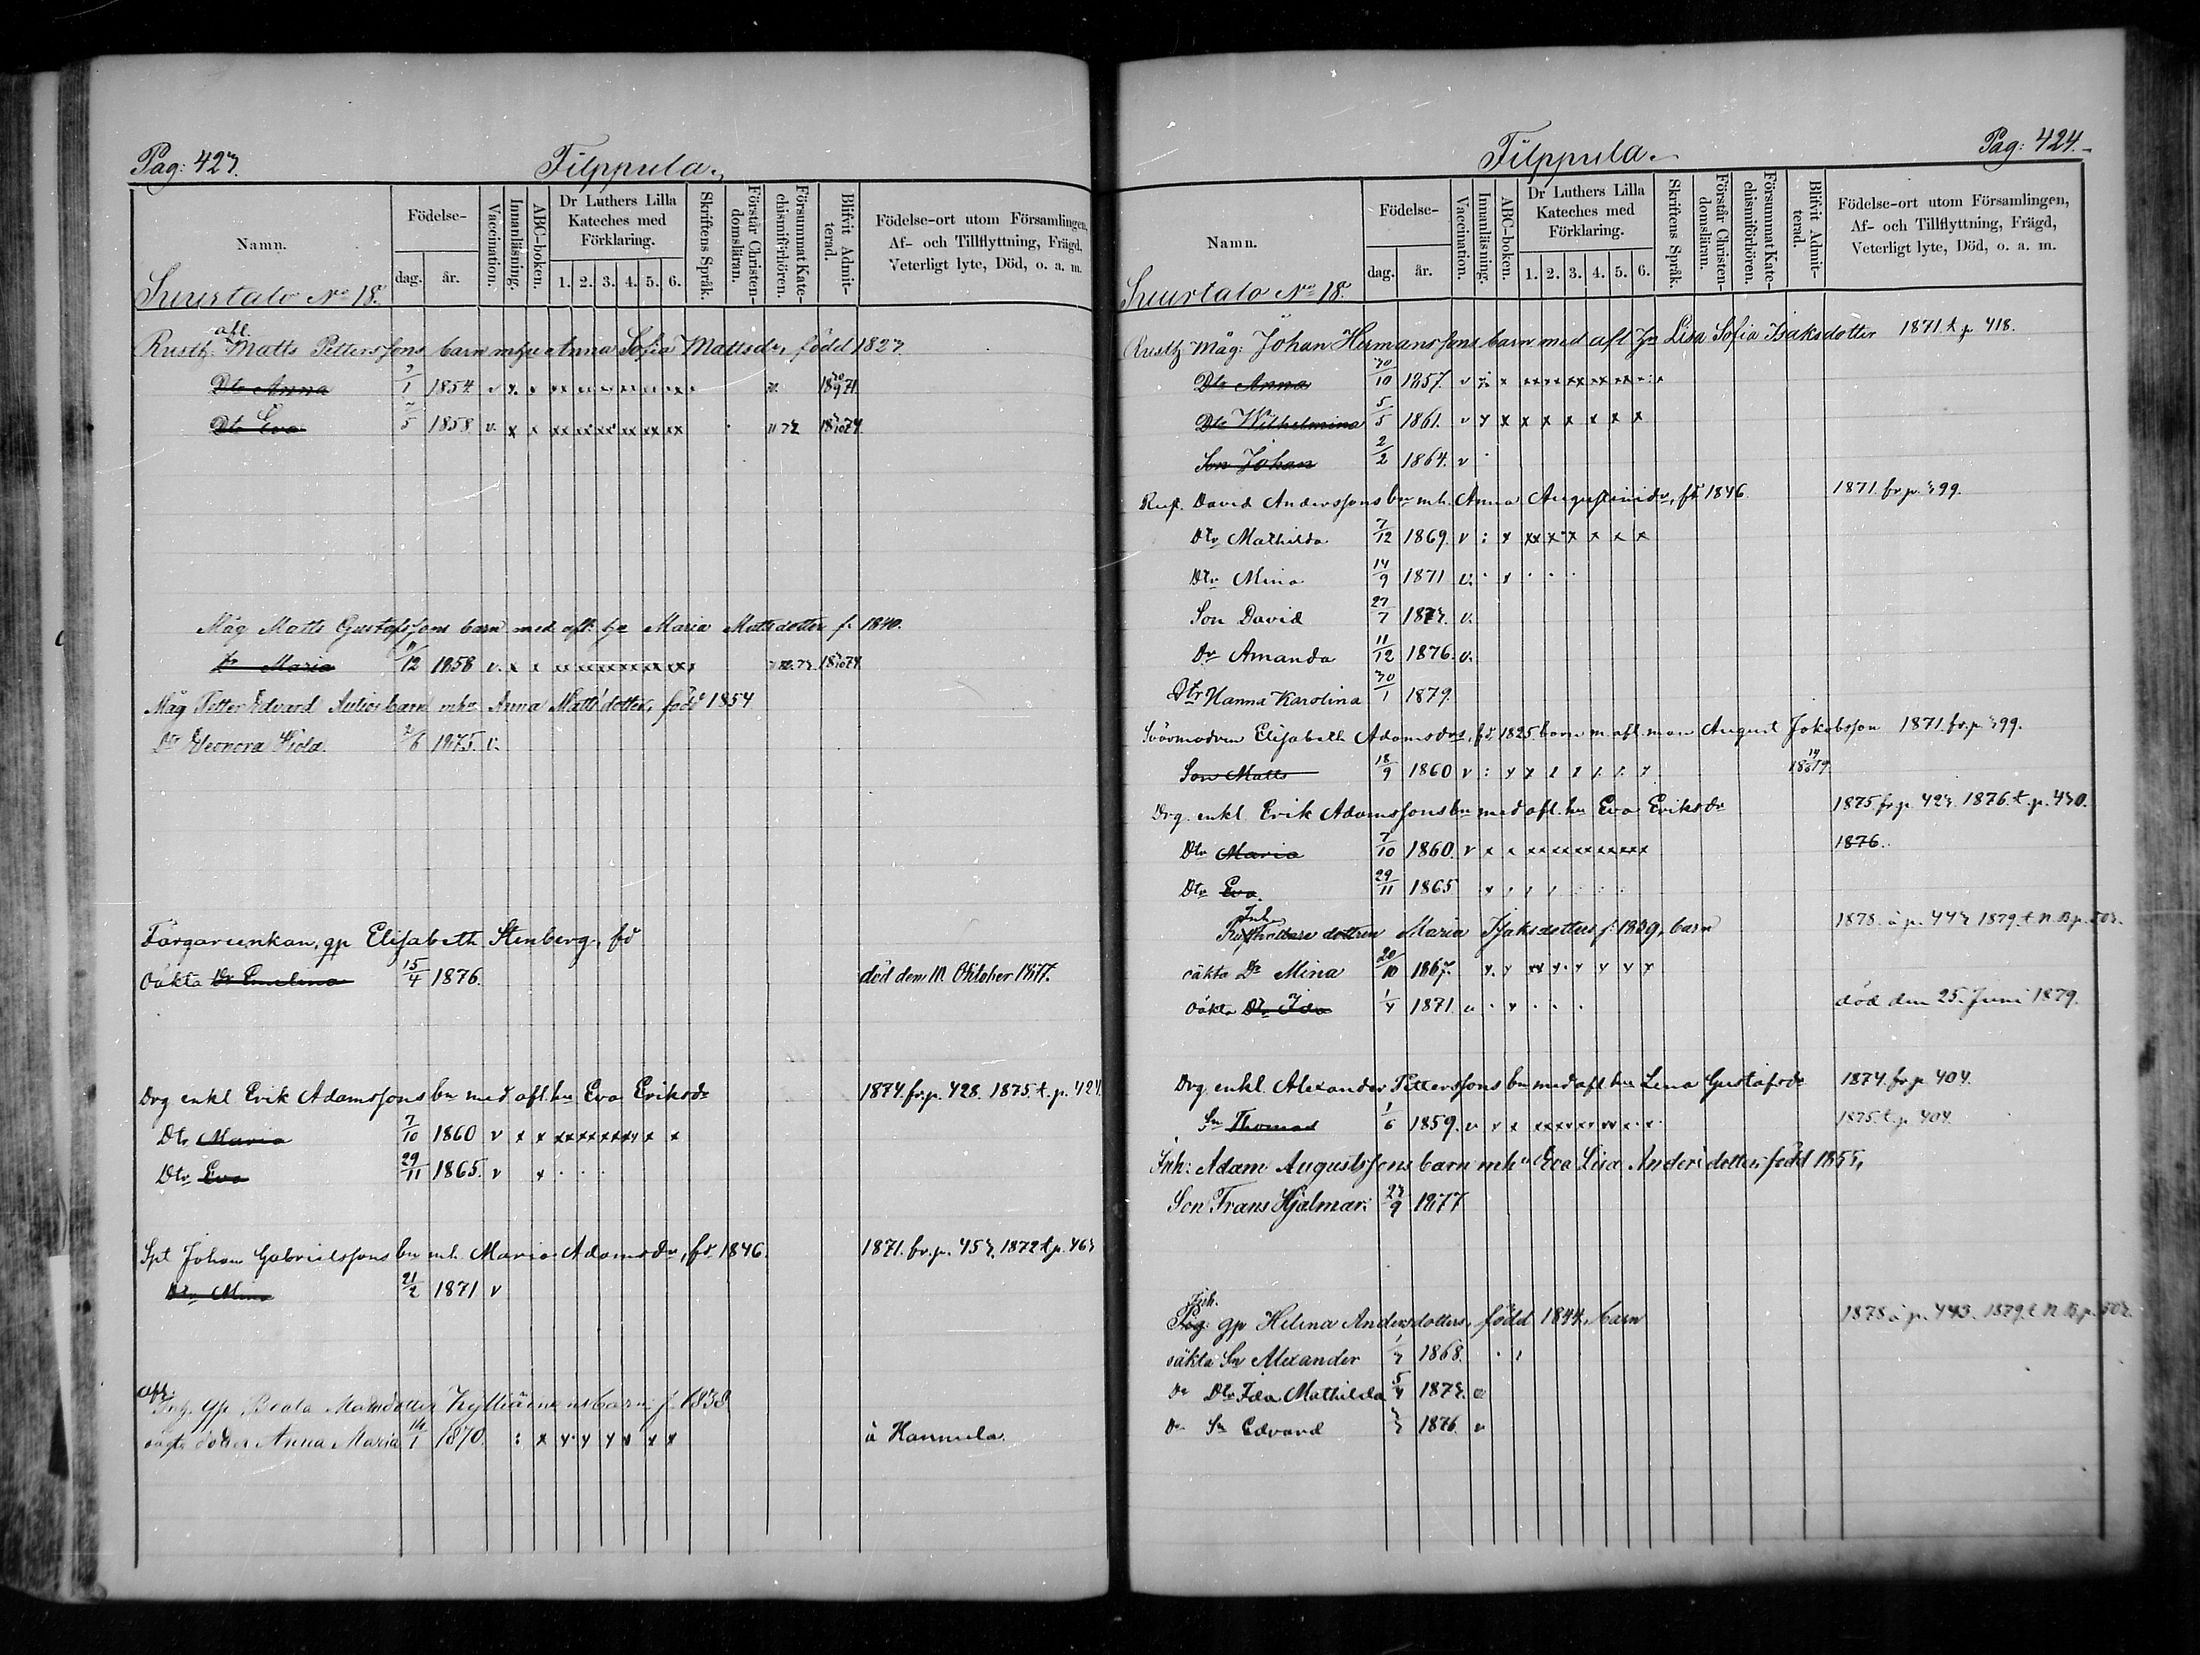 Pag: 423.
Filppula.
Namn.
Födelse-
dag. år.
Vaccination.
Innanläsning.
ABC-boken.
Dr Luthers Lilla Kateches med Förklaring.
1. 2. 3. 4. 5. 6.
Skriftens Språk.
Förstår Christendomsläran.
Försummat Katechismiförhören.
Blifvit Admitterad.
Födelse-ort utom Församlingen, Af- och Tillflyttning, Frägd, Veterligt lyte, Död, o. a. m.
Suurtalo No 18.
afl.
Rusth. Matts Petterssons barn mhu Anna Sofia Mattsdr, född 1823.
Dtr Anna 3/1 1854 v x x xx xx xx xx xx xx
Dtr Eva 3/5 1858 v. x x xx xx xx xx xx xx
Måg Matts Gustafssons barn med afl. h:u Maria Mattsdotter f. 1840.
Dr Maria /12 1858 v. x x xx xx xx xx xx xx
Måg Petter Edvard barn mhu Anna Mattsdotter, född 1854
Dr Eleonora /6 1875. v.
Färgareenkan, gp Elisabeth Stenberg, fd
Oäkta Dr Emelina 15/4 1876. död den 10. Oktober 1877.
Drg enkl Erik Adamssons bn med afl. hu Eva Eriksdr 1874. fr. p. 428. 1875. t. p. 424.
Dtr Maria 7/10 1860 v x x xx xx xx xx x x
Dtr Eva 29/11 1865. v x . . .
Spl Johan Gabrielssons bn mh. Maria Adamsdr, fd 1846. 1871. fr. p. 453. 1872 t. p. 463
Dtr Mina 21/2 1871 v
afl.
Inh. gp Beata Matsdotter barn f. 1838
oägta dotter Anna Maria 14/1 1870. : x x x x x x x å Hannula.
Pag: 424.
Filppula.
Namn.
Födelse-
dag. år.
Vaccination.
Innanläsning.
ABC-boken.
Dr Luthers Lilla Kateches med Förklaring.
1. 2. 3. 4. 5. 6.
Skriftens Språk.
Förstår Christendomsläran.
Försummat Katechismiförhören.
Blifvit Admitterad.
Födelse-ort utom Församlingen, Af- och Tillflyttning, Frägd, Veterligt lyte, Död, o. a. m.
Suurtalo No 18.
Rusth. Måg: Johan Hermanssons barn med afl h:u Lisa Sofia Isaksdotter 1871 t. p. 418.
Dtr Anna 30/10 1857. v x x xx xx xx xx xx
Dtr Wilhelmina 5/5 1861. v x x x x x x x x
Son Johan 2/2 1864. v
Rusth. David Anderssons bn mh. Anna Augustinidr, fd 1846. 1871. fr. p. 399.
Dtr Mathilda 7/12 1869. v : x xx x x x x x
Dtr Mina 14/9 1871 v. . x . . .
Son David 27/7 1873. v.
Dr Amanda 11/12 1876. v.
Dtr Hanna Karolina 30/1 1879.
Svärmodren Elisabeth Adamsdr, fd 1825 barn m. afl. man August Jakobsson 1871. fr. p. 399.
Son Matts 18/9 1860 v : x x
Drg. enkl. Erik Adamssons bn med afl. hu Eva Eriksdr 1875. fr. p. 423. 1876. t. p. 430.
Dtr Maria 7/10 1860. v x x xx xx xx xx xx 1876.
Dtr Eva 29/11 1865
Inh.
dottren Maria Isaksdotter f. 1839, barn 1878. å p. 443 1879. t. N. B. p. 503.
oäkta Dr Mina 20/10 1867. x. x xx x. x x x x
Oäkta Dr Ida 1/4 1871. v . x . . . död den 25. Juni 1879.
Drg. enkl. Alexander Petterssons bn med afl. hu Lena Gustafsdr 1874. fr. p. 404.
Sn Thomas 1/6 1859. v x x xx xx xx xx x. x 1875. t. p. 404.
Inh: Adam Augustssons barn mhu Eva Lisa Andersdotter född 1855,
Son Frans Hjalmar. 23/9 1877
Inh.
Pig. gp Helena Andersdotters, född 1844, barn 1878 å p. 443. 1879. t. N. B. p. 503.
oäkta Sn Alexander 1/3 1868.
Dr Dtr Ida Mathilda 5/4 1873. v
Dr Sn Edvard 1876. v